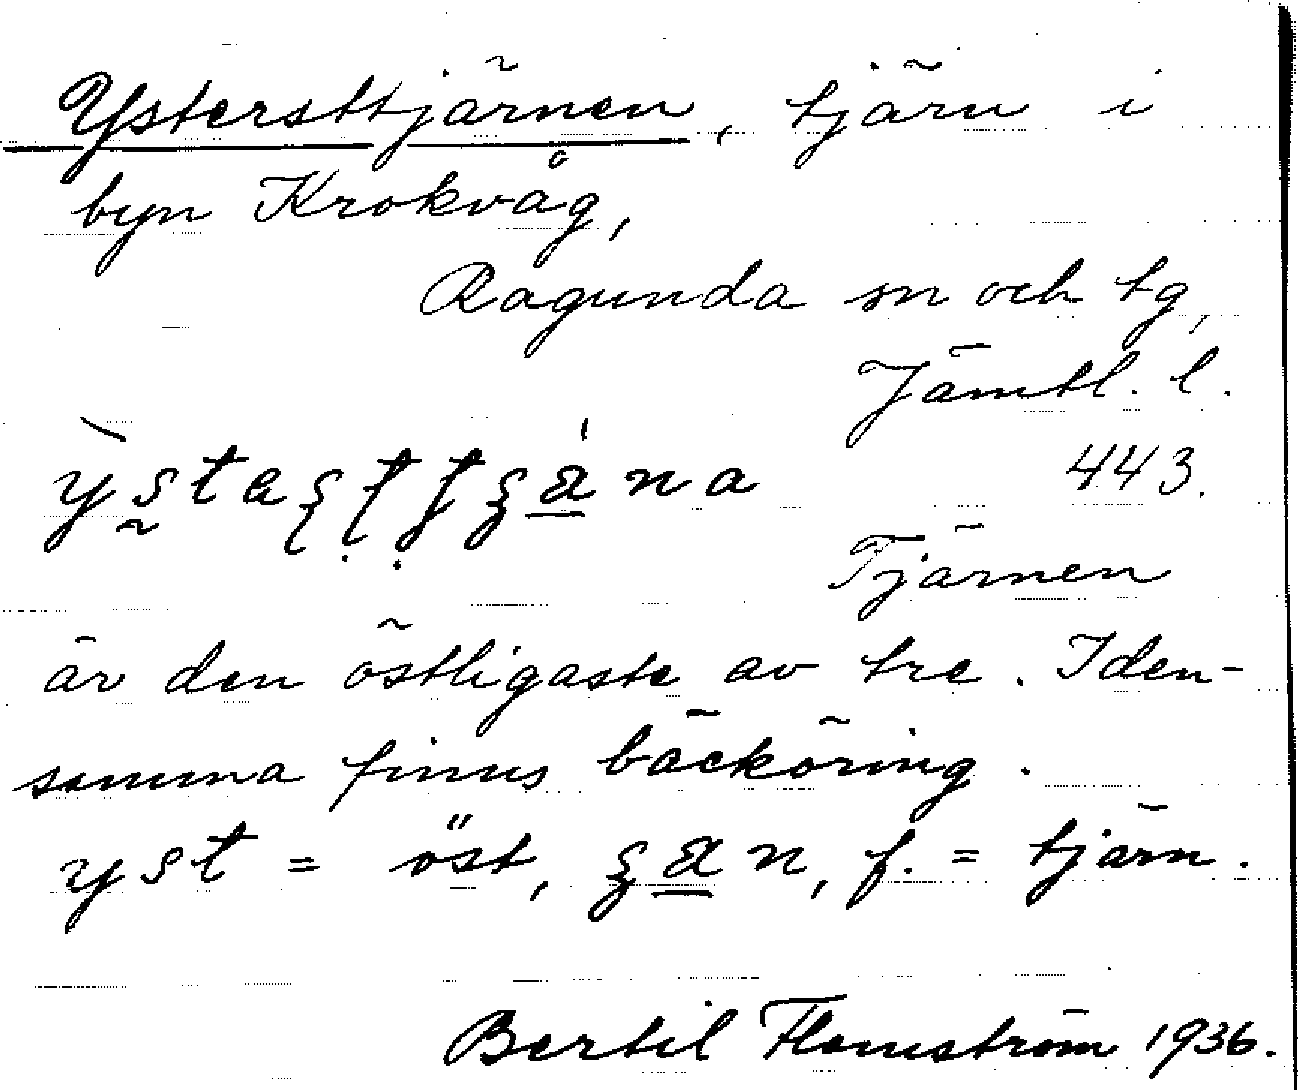 Ystersttjärnen, tjärn i
byn Krokvåg,
Ragunda sn och tg,
Jämtl. l.
443.
Tjärnen
är den östligaste av tre. Iden-
samma finns bäcköring.
yst = öst, = tjärn.
Bertil Flemström 1936.